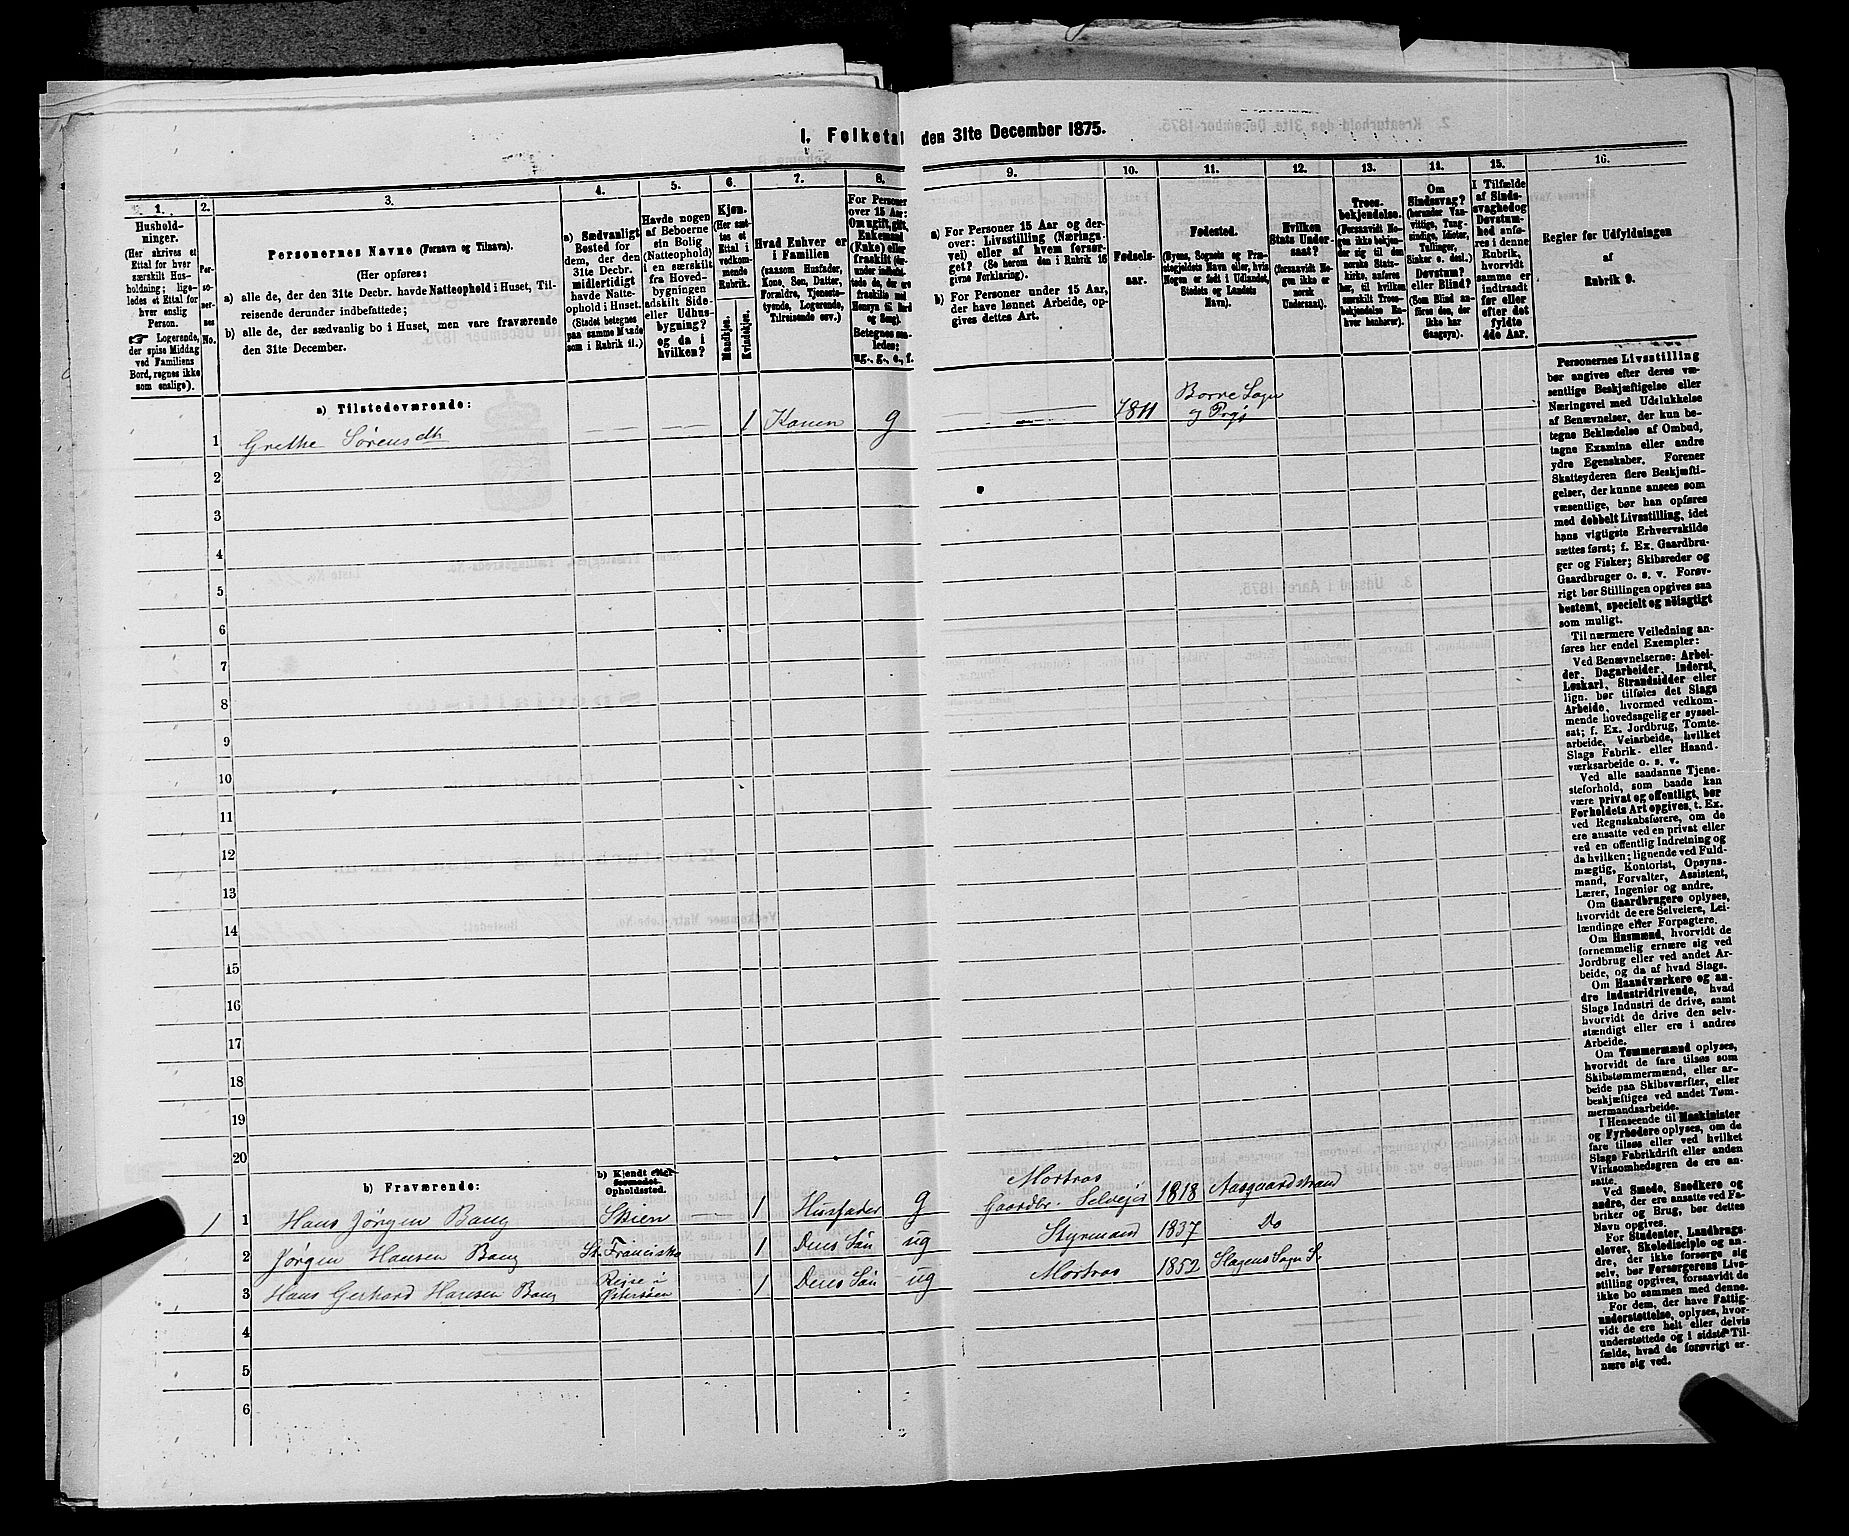 I. Folketal den 31te December 1875.
1. 2. 3. 4. 5. 6. 7. 8. 9. 10. 11. 12. 13. 14. 15. 16.
Husholdninger.
(Her skrives et
Ettal for hver
særskilt Husholdning; ligeledes et Ettal for
hver enslig
Person.
☞ Logerende,
der spise Middag
ved Familiens
Bord, regnes ikke
som enslige).
Personernes No.
Personernes Navne (Fornavn og Tilnavn).
(Her opføres:
a) alle de, der den 31te Decbr. havde Natteophold i Huset, Tilreisende derunder indbefattede;
b) alle de, der sædvanlig bo i Huset, men vare fraværende
den 31te December.
a) Sædvanligt
Bosted for
dem, der den
31te Decbr.
midlertidigt
havde Natteophold i Huset.
(Stedet betegnes
paa samme Maade
som i Rubrik 11.)
Havde nogen
af Beboerne
sin Bolig
(Natteophold)
i en særskilt
fra Hovedbygningen
adskilt Side-
eller Udhusbygning?
og da i
hvilken?
Kjøn.
(Her sættes et
Ettal i
vedkommende
Rubrik.
Mandkjøn. Kvindekjøn.
Hvad Enhver er
i Familien
(saasom Husfader,
Kone, Søn, Datter,
Forældre, Tjenestetyende, Logerende,
Tilreisende osv.)
For Personer
over 15 Aar:
Om ugift, gift,
Enkemand
(Enke) eller
fraskilt
Betegnes saaledes:
ug., g., e., f.
a) For Personer 15 Aar og derover: Livsstilling (Næringsvei) eller af hvem forsørget? (Se herom den i Rubrik 16
givne Forklaring).
b) For Personer under 15 Aar,
der have lønnet Arbeide, opgives dettes Art.
Fødselsaar.
Fødested.
(Byens, Sognets og Præstegjeldets Navn eller, hvis
Nogen er født i Udlandet,
Stedets og Landets
Navn).
Hvilken
Stats Undersaat?
(forsaavidt Nogen ikke er
norsk
Undersaat).
Troesbekjendelse.
(Forsaavidt Nogen ikke bekjender sig til den
norske Statskirke, anføres
her, til hvilken
særskilt Troesbekjendelse Enhver henhører).
Om
Sindssvag?
(herunder Vanvittige, Tungsindige, Idioter,
Tullinger,
Sinker o. desl.)
Døvstum?
eller Blind?
(Som Blind anføres den, der
ikke har
Gangsyn).
I Tilfælde
af Sindssvaghed og
Døvstumhed anføres i denne
Rubrik,
hvorvidt
samme er
indtraadt
før eller
efter det
fyldte
4de Aar.
Regler for Udfyldningen
af
Rubrik 9.
a) Tilstedeværende:
1 Grethe Sørensdtr — — 1 Konen g — 1811 Borre Sogn
og Prgj
2
3
4
5
6
7
8
9
10
11
12
13
14
15
16
17
18
19
20
b) Fraværende:
b) Kjendt eller
formodet
Opholdssted.
1 1 Hans Jørgen Bang Skien — 1 Husfader g Matros
Gaardbr. Selveier 1818 Aasgaardstrand
2 Jørgen Hansen Bang St. Franciska 1 Deres Søn ug Styrmand 1837 Do
3 Hans Gerhard Hansen Bang Reise i
Østersøen 1 Deres Søn ug Matros 1852 Slagens Sogn
4
5
6
Personernes Livsstilling
bør angives efter deres væsentlige Beskjæftigelse eller
Næringsvei med Udelukkelse
af Benævnelser, der kun betegne Beklædelse af Ombud,
tagne Examina eller andre
ydre Egenskaber. Forener
Skatteyderen flere Beskjæftigelser, der kunne ansees som
væsentlige, bør han opføres
med dobbelt Livsstilling, idet
hans vigtigste Erhvervskilde
sættes først; f. Ex. Gaardbruger og Fisker; Skibsreder og
Gaardbruger o. s. v. Forøvrigt bør Stillingen opgives saa
bestemt, specielt og nøiagtigt
som muligt.
Til nærmere Veiledning anføres her endel Exempler:
Ved Benævnelserne: Arbeider, Dagarbeider, Inderst,
Løskarl, Strandsidder eller
lign. bør tilføies det Slags
Arbeide, hvormed vedkommende hovedsagelig er sysselsat; f. Ex. Jordbrug, Tomtearbeide, Veiarbeide, hvilket
Slags Fabrik- eller Haandværksarbeide o. s. v.
Ved alle saadanne Tjenesteforhold, som baade kan
være privat og offentligt, bør
Forholdets Art opgives, t. Ex.
ved Regnskabsførere, om de
ere ansatte ved en privat eller
ved en offentlig Indretning og
da hvilken; lignende ved Fuldmægtig, Kontorist, Opsynsmand, Forvalter, Assistent,
Lærer, Ingeniør og andre.
Om Gaardbrugere oplyses,
hvorvidt de ere Selveiere, Leilændinge eller Forpagtere.
Om Husmænd, hvorvidt de
fornemmelig ernære sig ved
Jordbrug eller ved andet Arbeide, og da af hvad Slags.
Om Haandværkere og andre Industridrivende, hvad
Slags Industri de drive, samt
hvorvidt de drive den selvstændigt eller ere i andres
Arbeide.
Om Tømmermænd oplyses,
hvorvidt de fare tilsøs som
Skibstømmermænd, eller arbeide paa Skibsværfter, eller
beskjæftiges ved andet Tømmermandsarbeide.
I Henseende til Maskinister
og Fyrbødere oplyses, om de
fare tilsøs eller ved hvilket
Slags Fabrikdrift eller anden
Virksomhedsgren de ere ansatte.
Ved Smede, Snedkere og
andre, der ere ansatte ved Fabriker og Brug, bør dettes
Navn opgives.
For Studenter, Landbrugselever, Skoledisciple og andre, der ikke forsørge sig
selv, bør Forsørgerens Livsstilling opgives, forsaavidt de
ikke bo sammen med denne.
For dem, der have Fattigunderstøttelse, oplyses, hvorvidt de ere helt eller delvis
understøttede og i sidste Tilfælde, hvad de forøvrigt ernære sig ved.